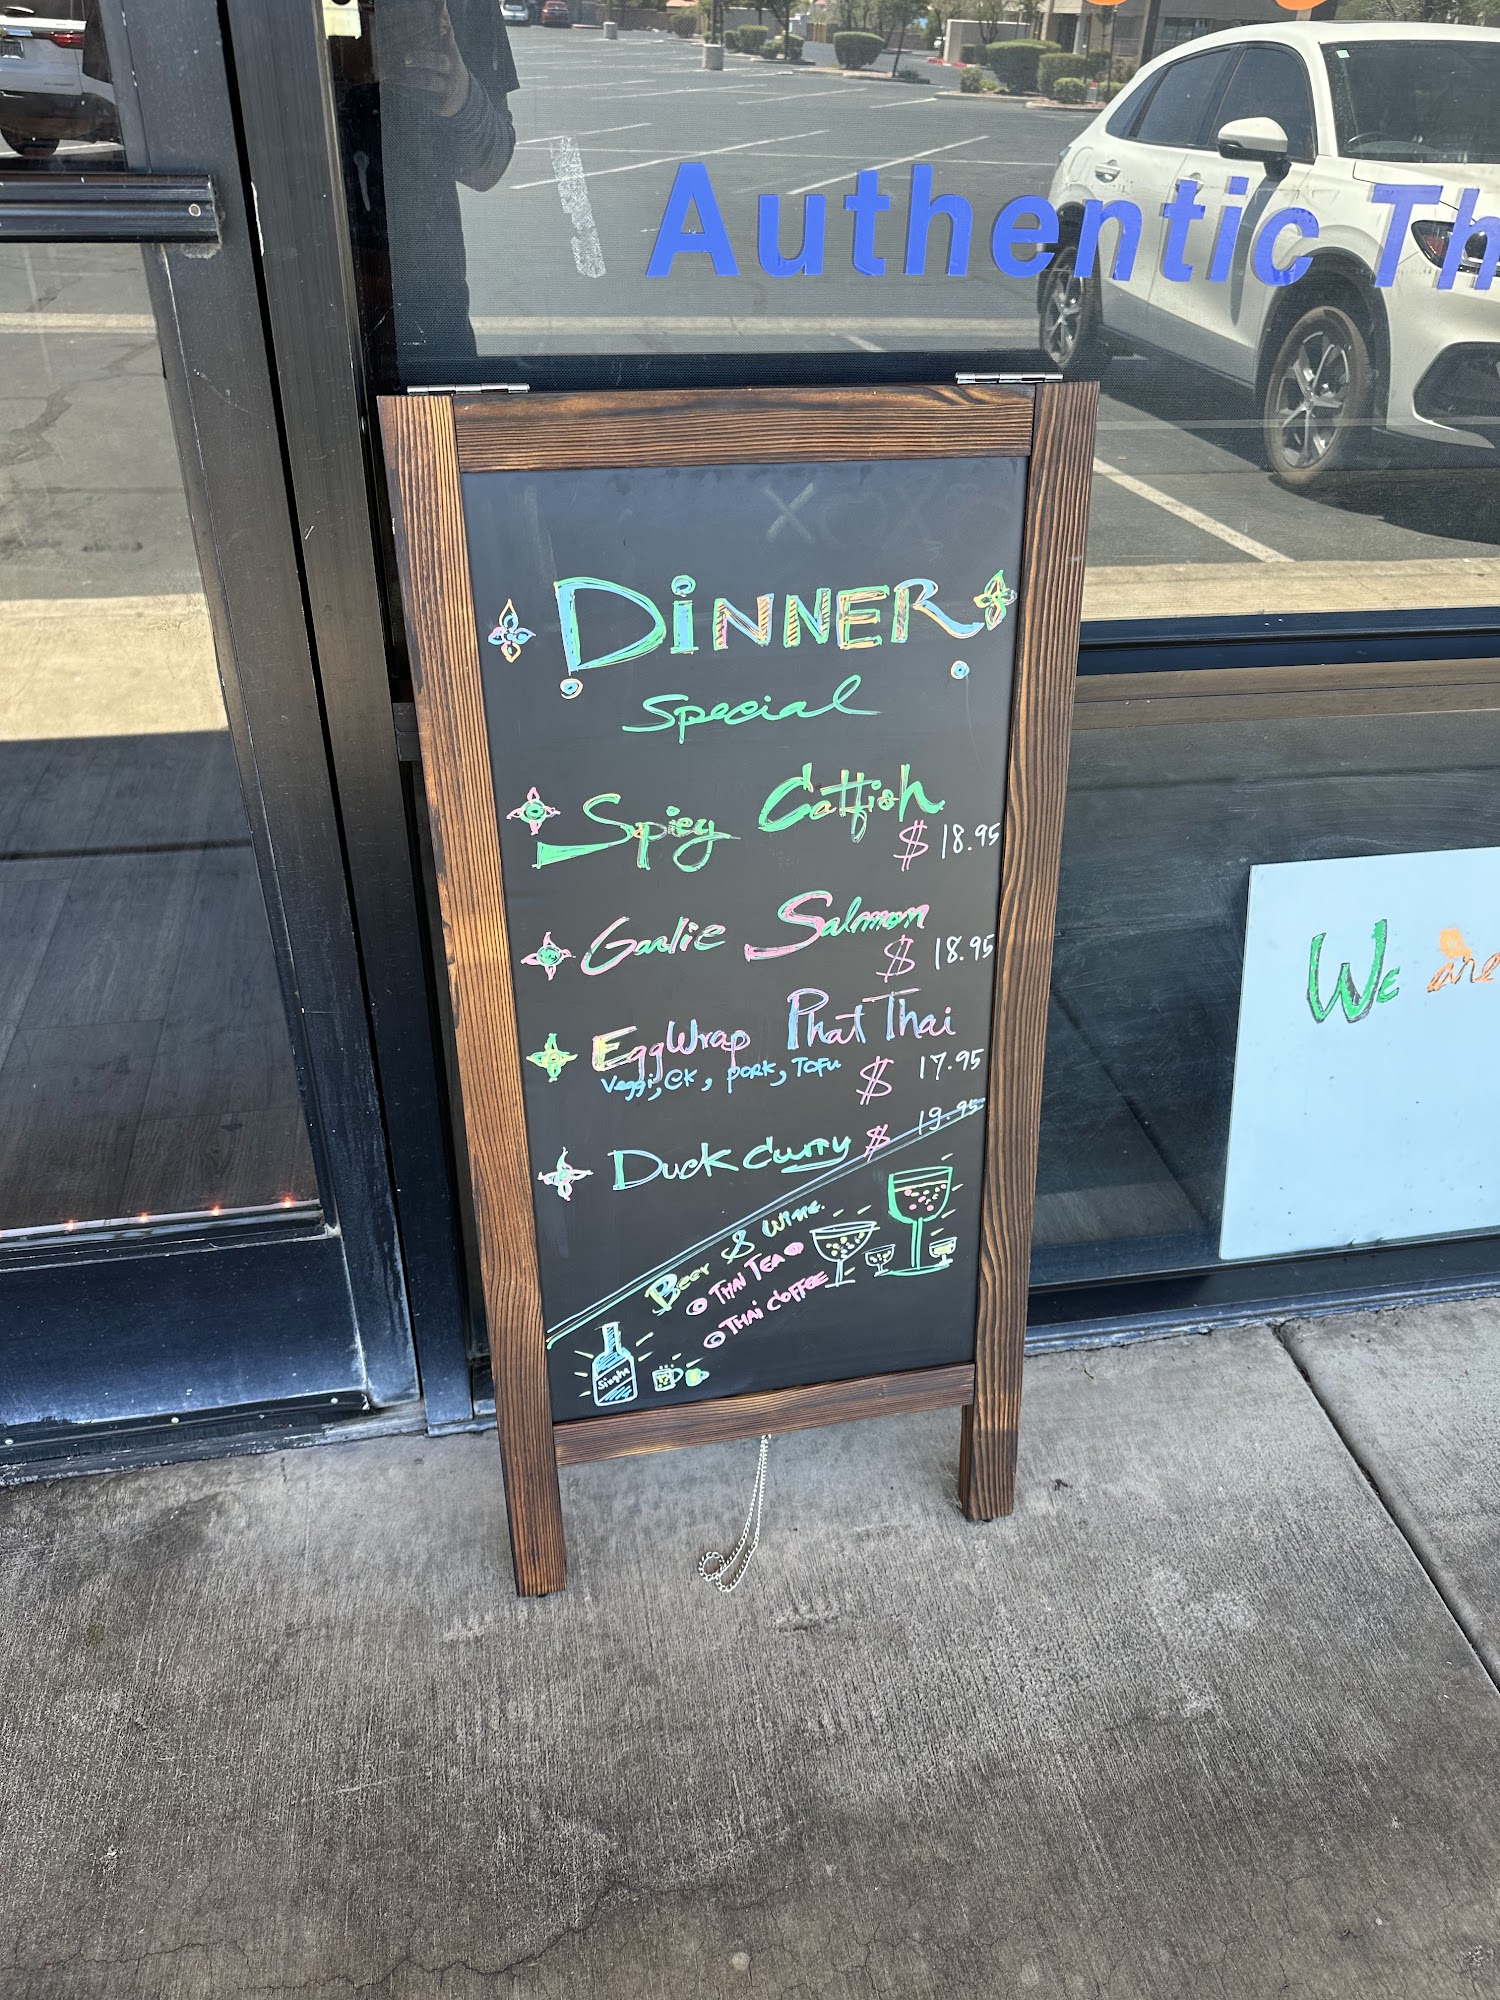 Authentic Th
XOXO
DiNNER
Special
Spicy Catfish
$ 18.95
Garlic Salmon
$ 18.95
EggWrap Phat Thai
Veggi, CK, PORK, TOFU
$ 17.95
Duck Curry $ 19.95
Beer & Wine.
THAI TEA
THAI COFFEE
Singha
We are